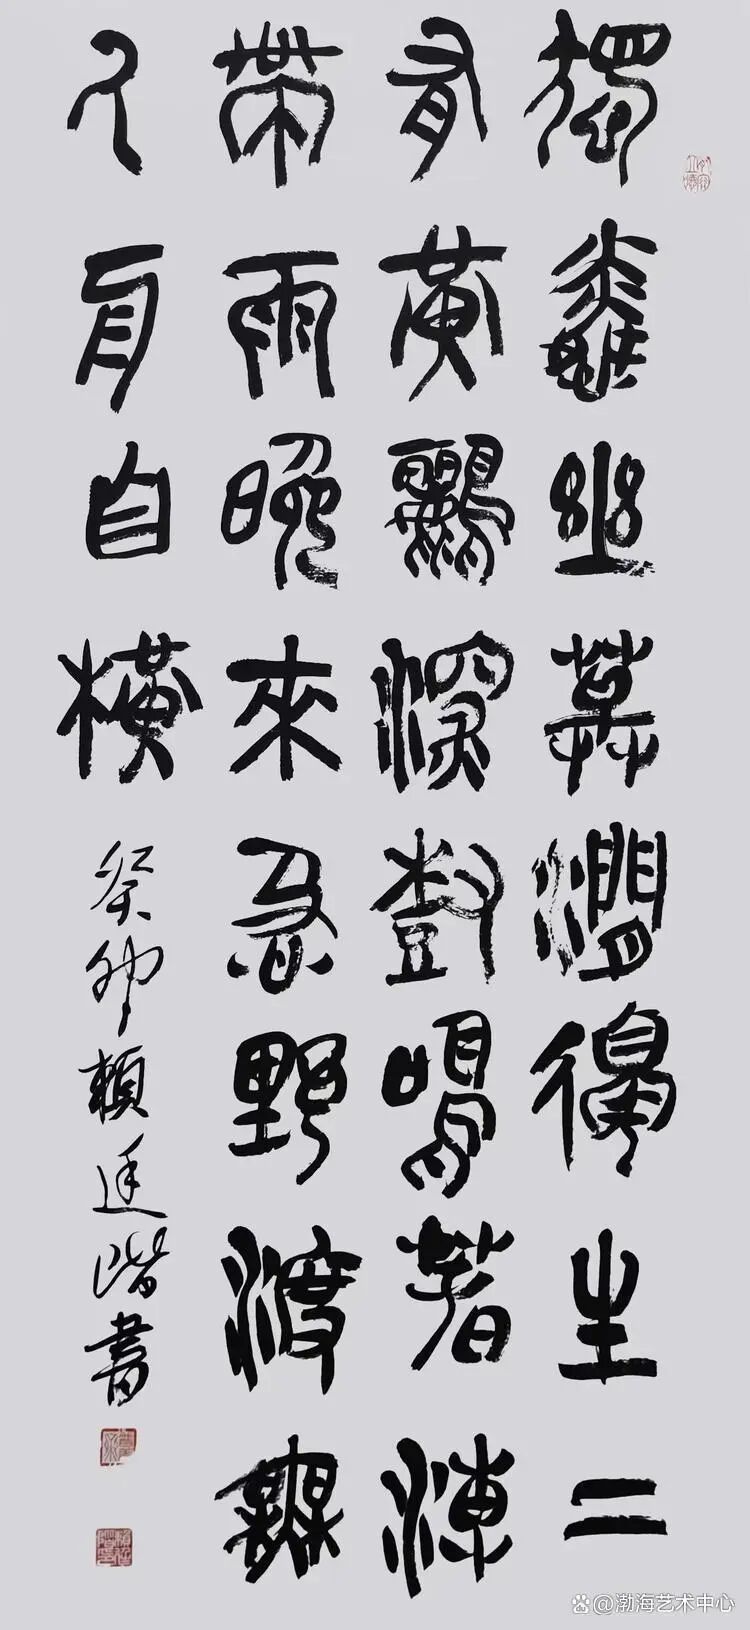 獨憐幽草澗邊生上
有黃鸝深樹鳴春潮
帶雨晚來急野渡無
人舟自橫
癸卯賴廷階書
@渤海艺术中心